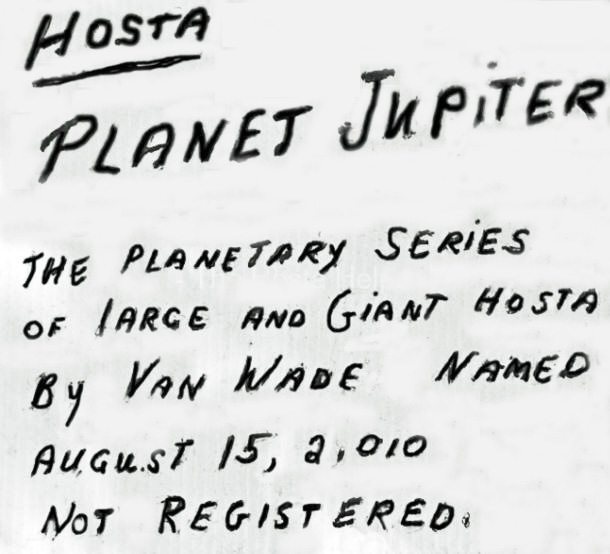 HOSTA
PLANET JUPiTER
THE PLANETARY SERiES
OF LARGE AND GiANT HOSTA
By VAN WADE NAMED
AUGUST 15, 2,010
NOT REGISTERED.